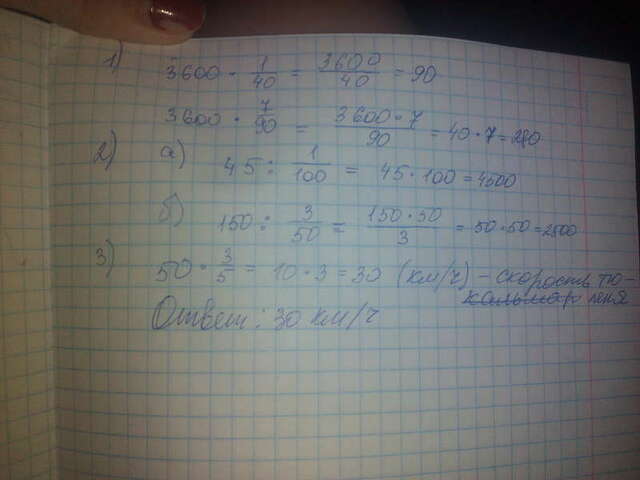 1) 3600 · 1/40 = 3600/40 = 90
3600 · 7/90 = 3600·7/90 = 40·7=280
2) а) 45 : 1/100 = 45·100=4500
б) 150 : 3/50 = 150·50/3 = 50·50=2500
3) 50 · 3/5 = 10·3=30 (км/ч) – скорость тю-
кальмара леня
Ответ: 30 км/ч